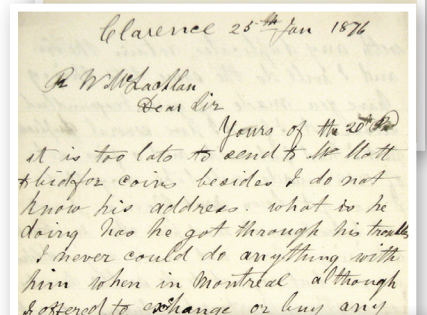 Clarence 25th Jan 1876
R W McLachlan
Dear Sir
Yours of the 20th
it is too late to send to Mr Mott
to bid for coins besides I do not
know his address. what is he
doing has he got through his troubles
I never could do anything with
him when in Montreal although
I offered to exchange or buy any